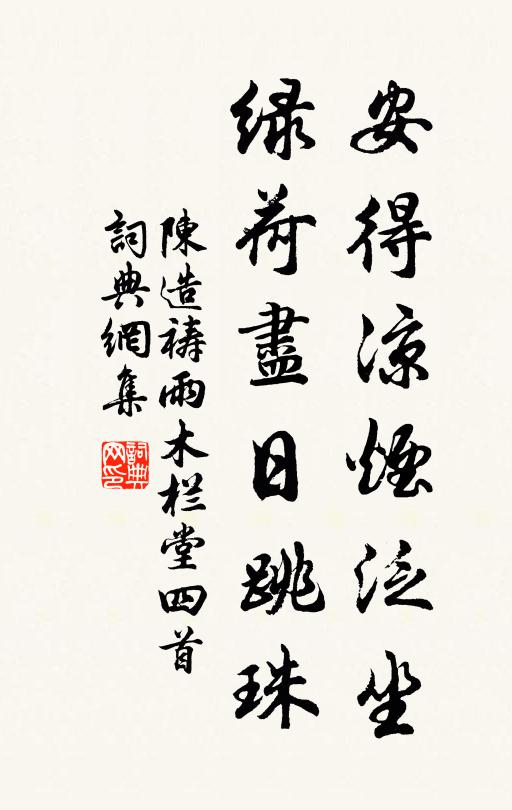 安得涼煙泛坐
緑荷盡日跳珠
陳造禱雨木栏堂四首
詞典網集
詞典網印